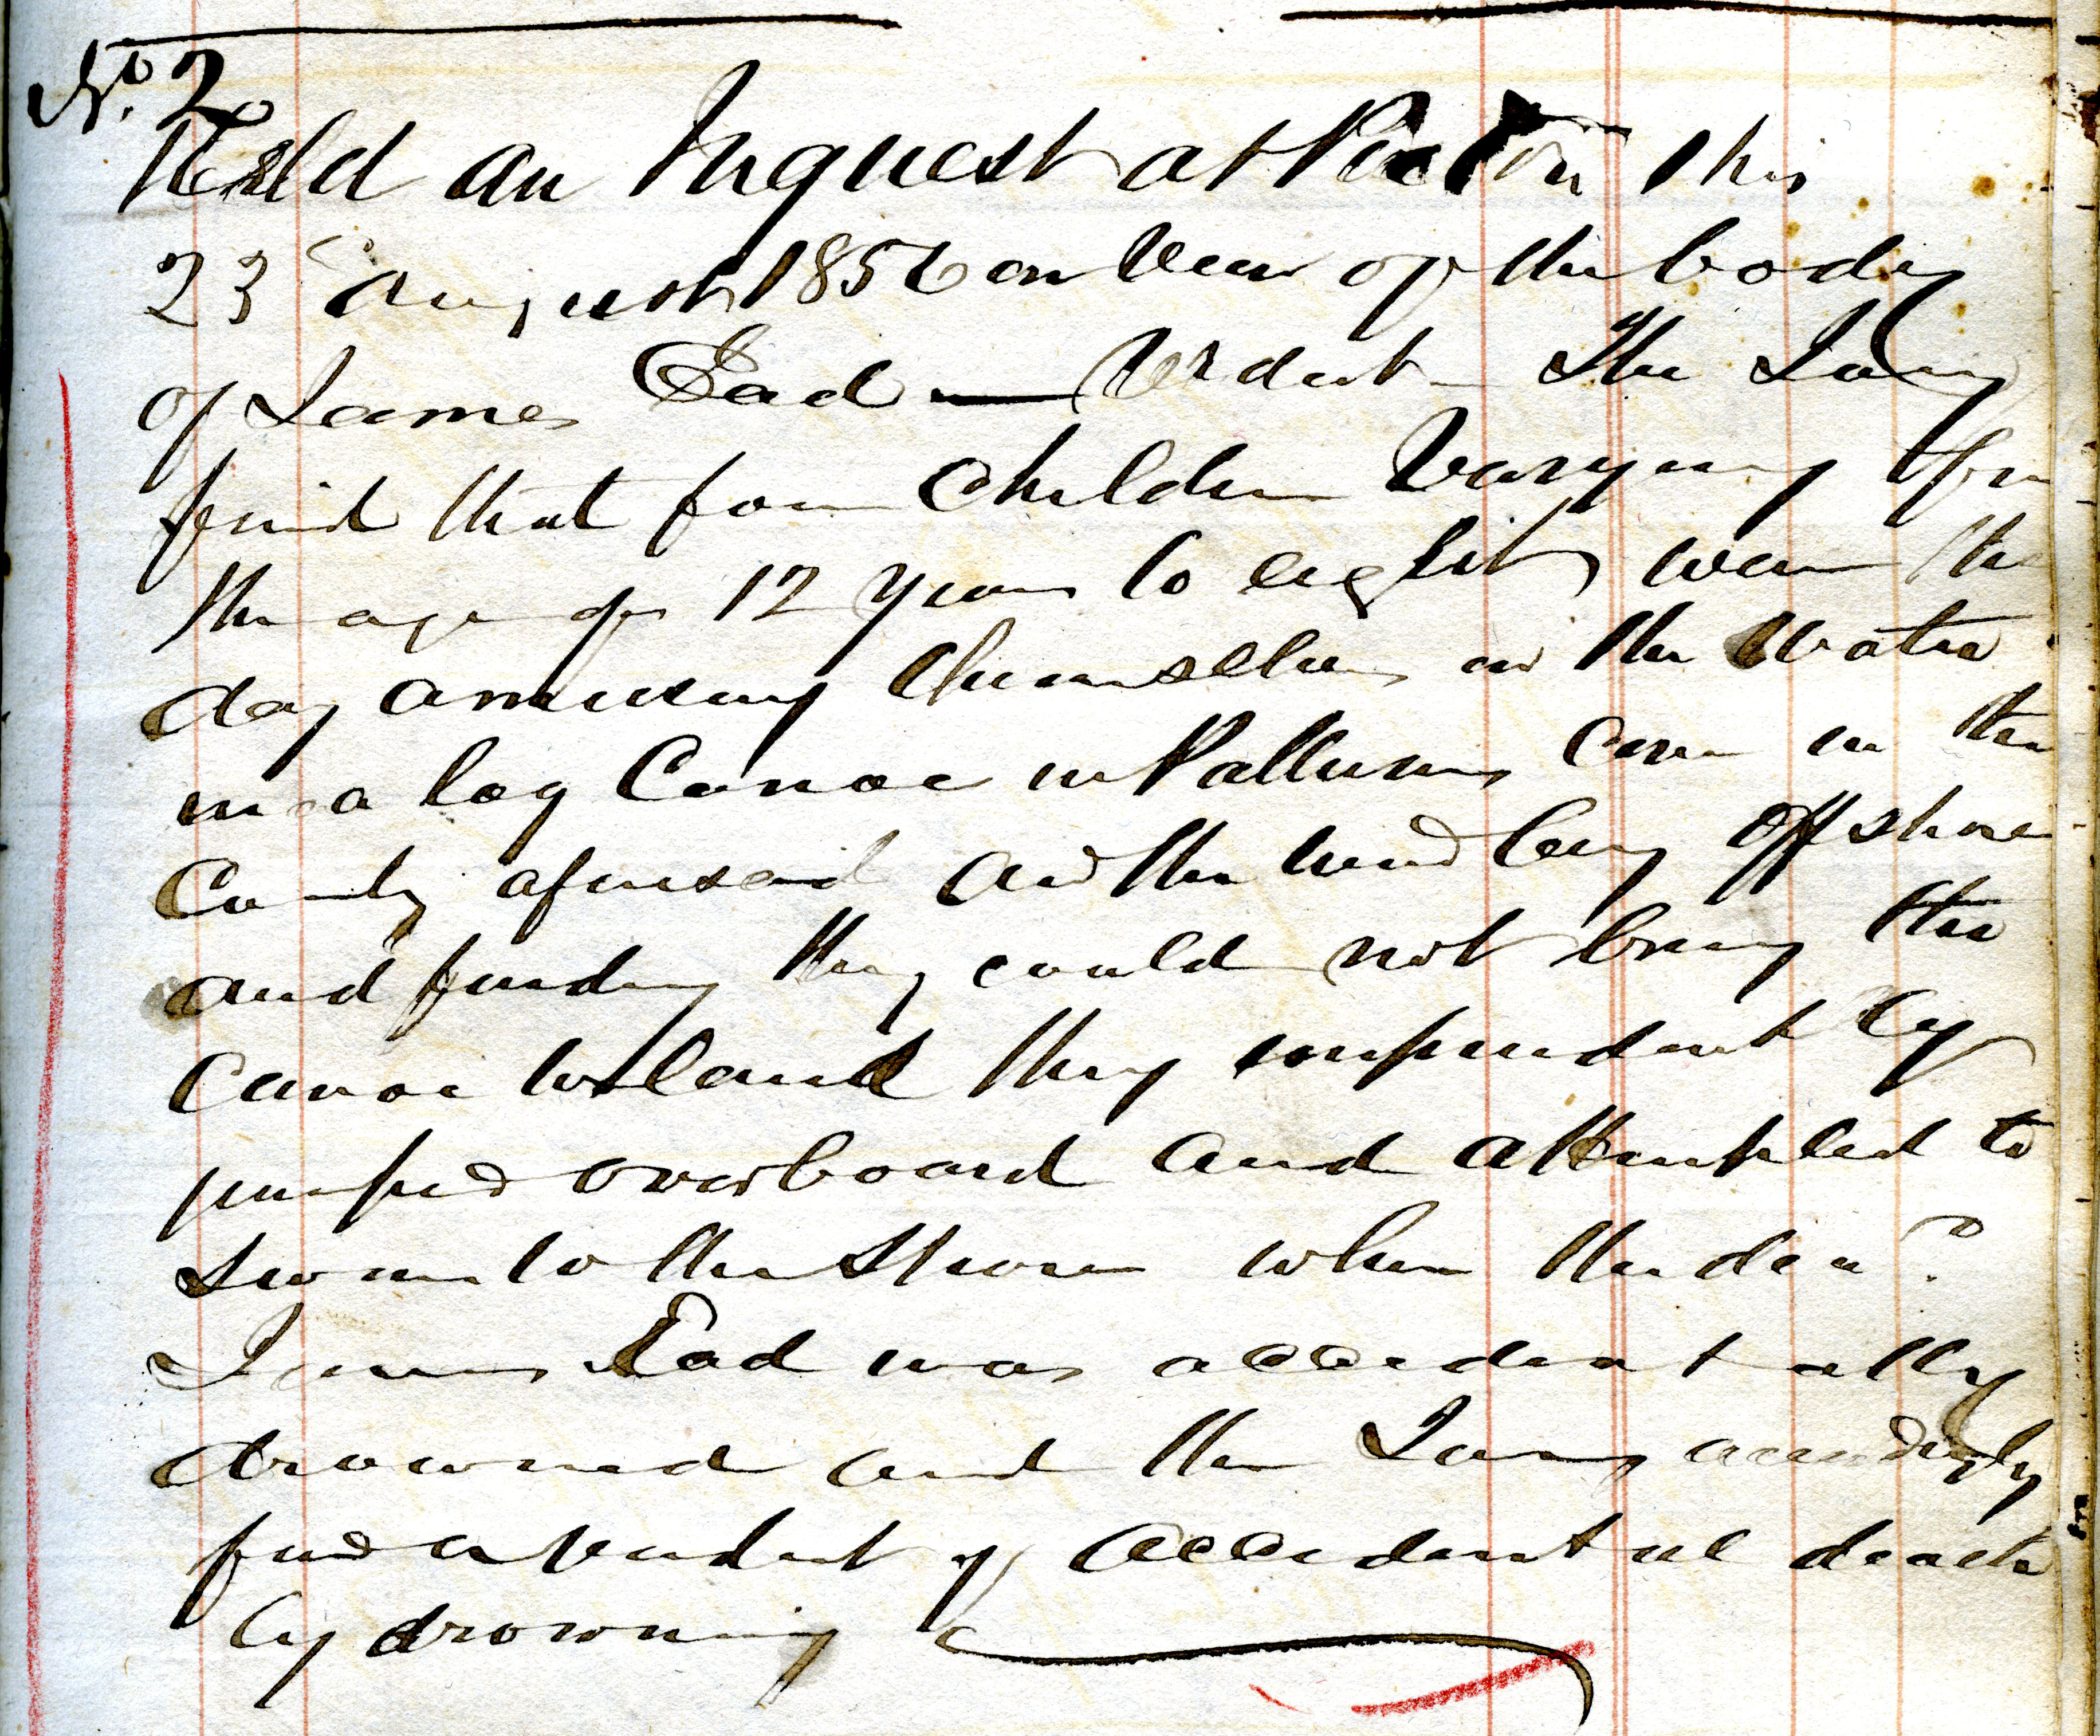 No. 2
Held an Inquest at Picton this
23 August 1856 on View of the body
of James Ead — Verdict – The Jury
find that four Children Varying from
the age of 12 years to eight were this
day amusing themselves in the Water
in a log Canoe in Cove in the
County aforesaid and the wind being off shore
and finding they could not bring the
Canoe to land they imprudently
jumped overboard and attempted to
swim to the Shore when the decd.
James Ead was accidentally
drowned and the Jury accordingly
find a verdict of accidental death
by drowning